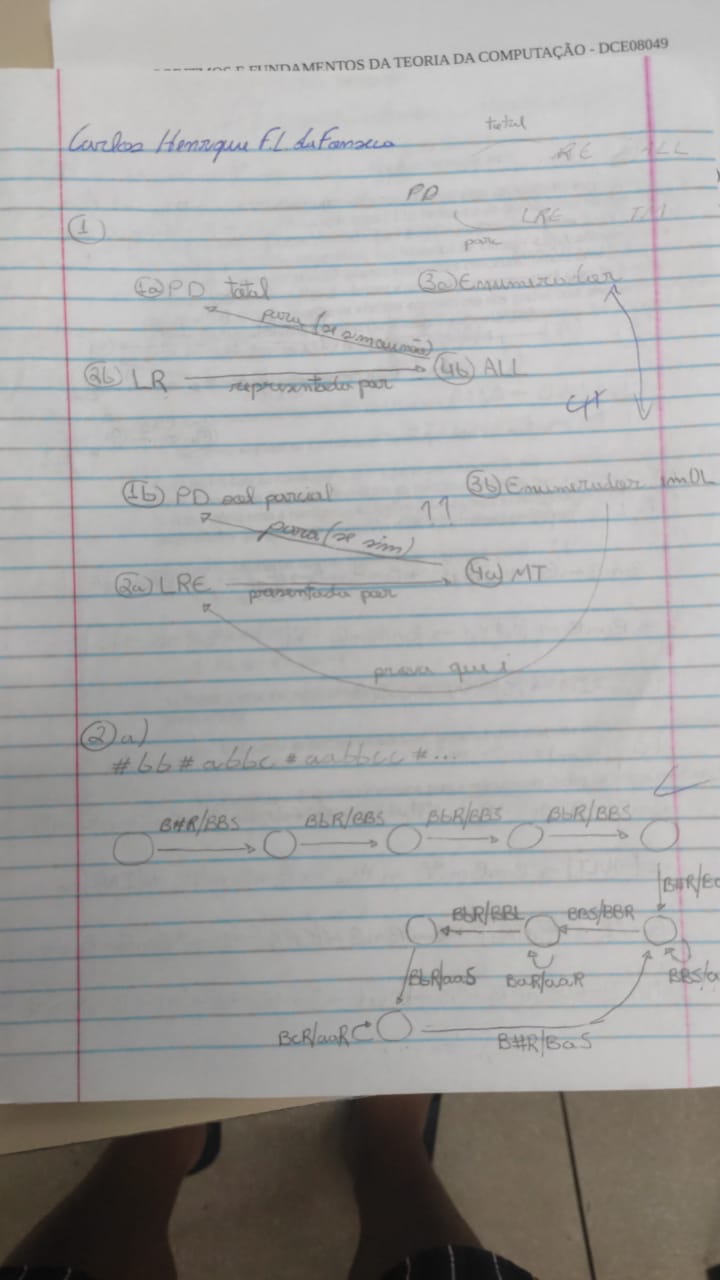 E FUNDAMENTOS DA TEORIA DA COMPUTAÇÃO - DCE08049
Carlos Henrique F.L. da Fonseca
total
RE ALL
PD
LRE
①
1a PD total
3a Enumerador
para (se sim ou não)
2b LR
4b ALL
representada por
1b PD parcial
3b Enumerador
para (se sim)
2a LRE
4a MT
prova que
2 a)
#bb#abbc#aabbcc#...
B#R/BBS BbR/BBS BbR/BBS BbR/BBS
BbR/BBL BBS/BBR
BbR/aaS BaR/aaR
BcR/aaR
B#R/BaS